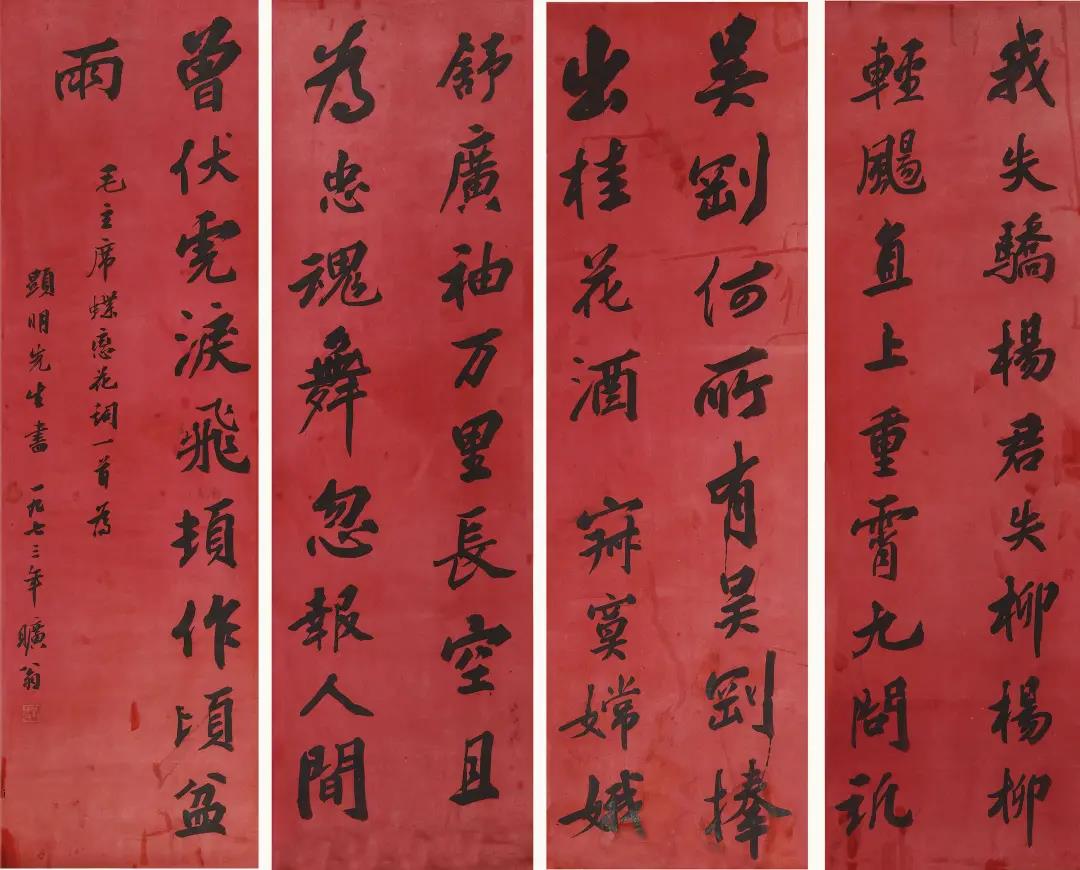 我失驕楊君失柳楊柳
輕颺直上重霄九問訊
吴剛何所有吴剛捧
出桂花酒寂寞嫦娥
舒廣袖万里長空且
為忠魂舞忽報人間
曾伏虎淚飛頓作頃盆
雨
毛主席蝶恋花詞一首為
顯明先生書 一九七三年 曠翁